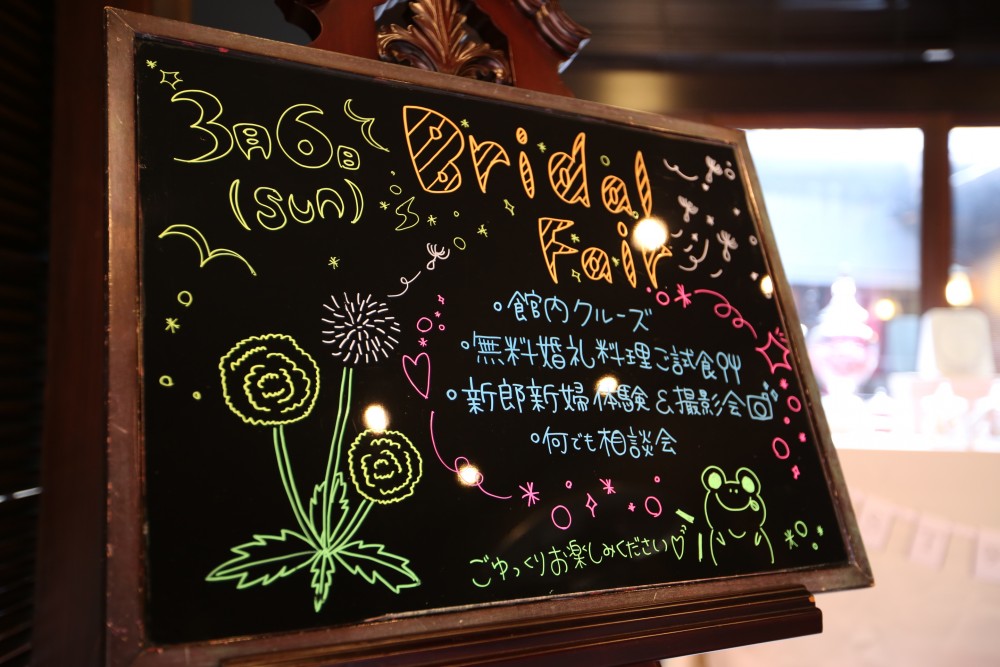 3月6日
(sun)
Bridal
Fair
◦館内クルーズ
・無料婚礼料理ご試食🍴
・新郎新婦体験&撮影会
◦何でも相談会
ごゆっくりお楽しみください♡